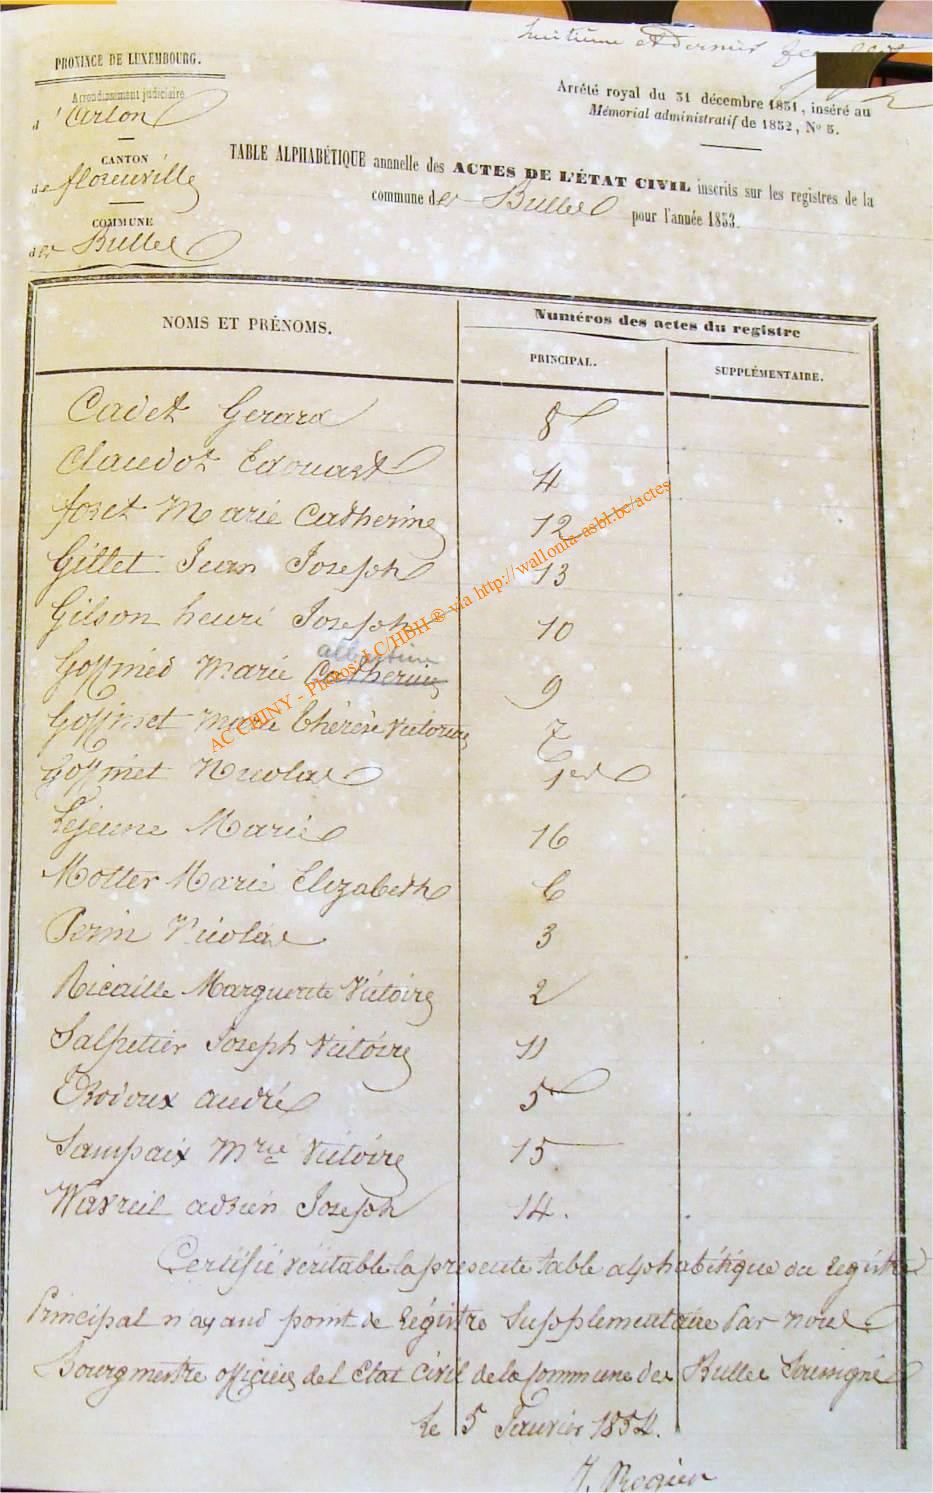 huitième et dernier
PROVINCE DE LUXEMBOURG.
Arrondissement judiciaire
d'Arlon
CANTON
de florenville
COMMUNE
der Bulles
Arrêté royal du 31 décembre 1851, inséré au
Mémorial administratif de 1852, No 5.
TABLE ALPHABÉTIQUE annuelle des ACTES DE L'ÉTAT CIVIL inscrits sur les registres de la
commune der Bulles pour l'année 1853.
NOMS ET PRÉNOMS.
Numéros des actes du registre
PRINCIPAL.
SUPPLÉMENTAIRE.
Cadet Gerard 8
Claudot Edouard 4
foret Marie Catherine 12
Gillet Jean Joseph 13
Gilson henri Joseph 10
albertine
Goffined Marie Catherine 9
Goffinet Marie thérèse Victoire 7
Goffinet Nicolas 1er
Lejeune Marie 16
Motter Marie Elizabeth 6
Perin Nicolas 3
Ricaille Marguerite Victoire 2
Salpetier Joseph Victoire 11
Trodoux andré 5
Sampaix Mrie Victoire 15
Wavreil adrien Joseph 14.
Certifié véritable la présente table alphabétique du Régistre
Principal n'ayand point de Régistre Supplementaire Par nous
Bourgmestre officier del Etat Civil de la Commune der Bulles Soussigné
Le 5 Janvier 1854.
AC CHINY - Photos LC/HBH ® via http://wallonia-asbl.be/actes